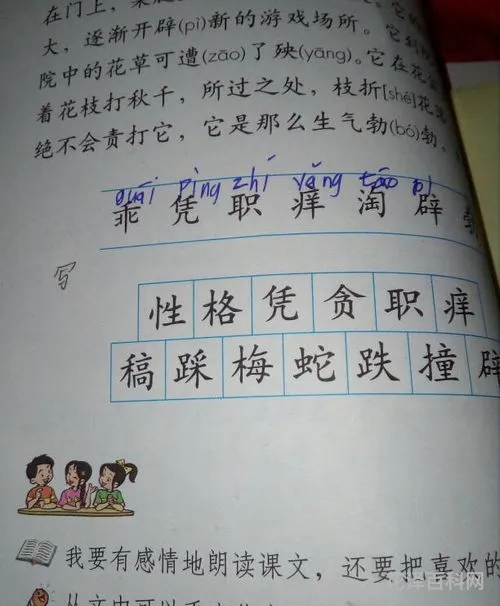 在门上，
大，逐渐开辟(pì)新的游戏场所。它到
院中的花草可遭(zāo)了殃(yāng)。它在花
着花枝打秋千，所过之处，枝折[shé]花
绝不会责打它，它是那么生气勃(bó)勃，
guāi píng zhí yǎng táo pì
乖 凭 职 痒 淘 辟
写
性 格 凭 贪 职 痒
稿 踩 梅 蛇 跌 撞 辟
我要有感情地朗读课文，还要把喜欢的
百科网